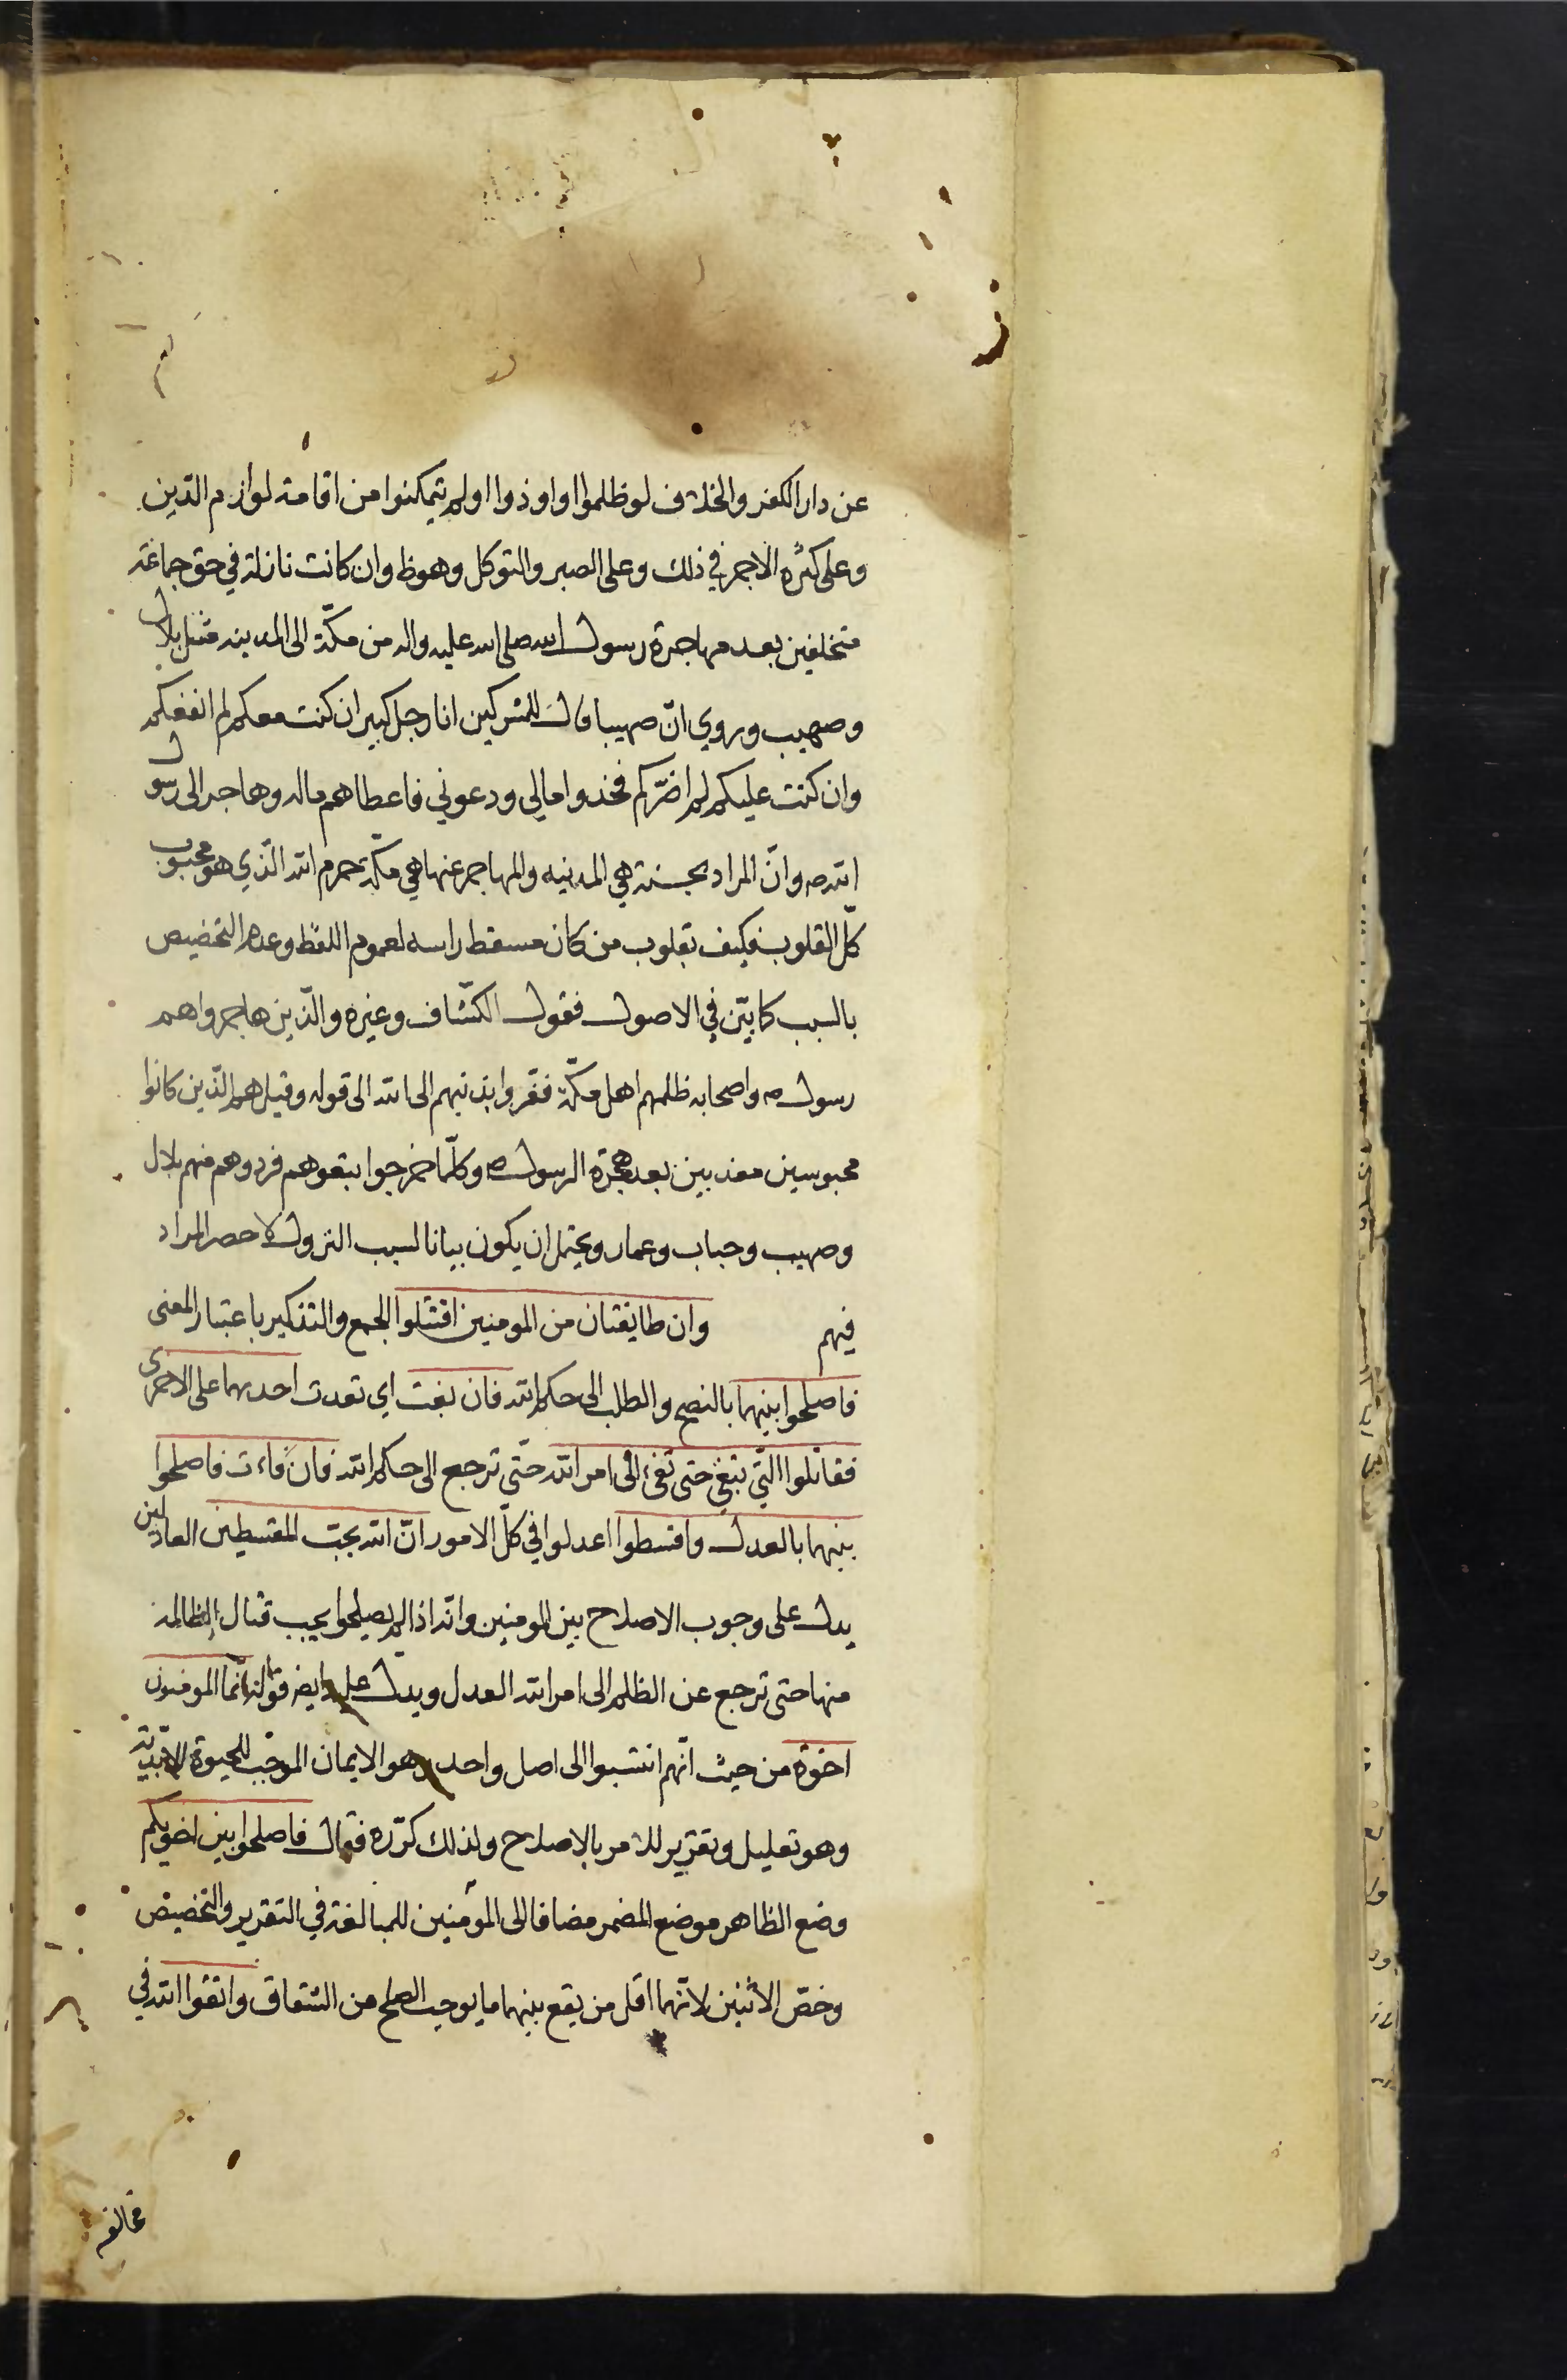 عن دار الكفر والخلاف لو ظلموا او اوذوا او لم يتمكنوا من اقامة لوازم الدّين
وعلى كثرة الاجر في ذلك وعلى الصبر والتوكل وهو ظ وان كانت نازلة في حق جماعة
متخلفين بعد مهاجرة رسول الله صلى الله عليه واله من مكّة الى المدينه مثل بلال
وصهيب وروي انّ صهيبا قال للمشركين انا رجل كبير ان كنت معكم لم انفعكم
وان كنت عليكم لم اضرّكم فخذوا مالي ودعوني فاعطاهم ماله وهاجر الى رسول
الله ص وانّ المراد بحسنة هي المدينه والمهاجر عنها هي مكّة حرم الله الّذي هو محبوب
كلّ القلوب فكيف بقلوب من كان مسقط راسه لعموم اللفظ وعدم التخصيص
بالسبب كما بيّن في الاصول فقول الكشّاف وغيره والّذين هاجروا هم
رسول ص واصحابه ظلمهم اهل مكّة ففروا بدينهم الى الله الى قوله وقيل هم الّذين كانوا
محبوسين معذبين بعد هجرة الرسول ص وكلّما خرجوا تبعوهم فردوهم منهم بلال
وصهيب وخباب وعمار ويحتمل ان يكون بيانا لسبب النزول لا حصر المراد
فيهم وان طايفتان من المومنين اقتتلوا الجمع والتذكير باعتبار المعنى
فاصلحوا بينهما بالنصح والطلب الى حكم الله فان بغت اي تعدت احديهما على الاخرى
فقاتلوا الّتي تبغي حتى تفيء الى امر الله حتّى ترجع الى حكم الله فان فاءت فاصلحوا
بينهما بالعدل واقسطوا اعدلوا في كلّ الامور انّ الله يحبّ المقسطين العادلين
يدل على وجوب الاصلاح بين المومنين وانّه اذا لم يصلحوا يجب قتال الظالمة
منها حتى ترجع عن الظلم الى امر الله العدل ويدل عليه ايضا قوله انّما المومنون
اخوة من حيث انّهم انتسبوا الى اصل واحد وهو الايمان الموجب للحيوة الابديّة
وهو تعليل وتقرير للامر بالاصلاح ولذلك كرّره فقال فاصلحوا بين اخويكم
وضع الظاهر موضع المضمر مضافا الى المؤمنين للمبالغة في التقرير والتخصيص
وخصّ الاثنين لانّهما اقل من يقع بينهما ما يوجب الصلح من الشقاق واتقوا الله في
مخالفة